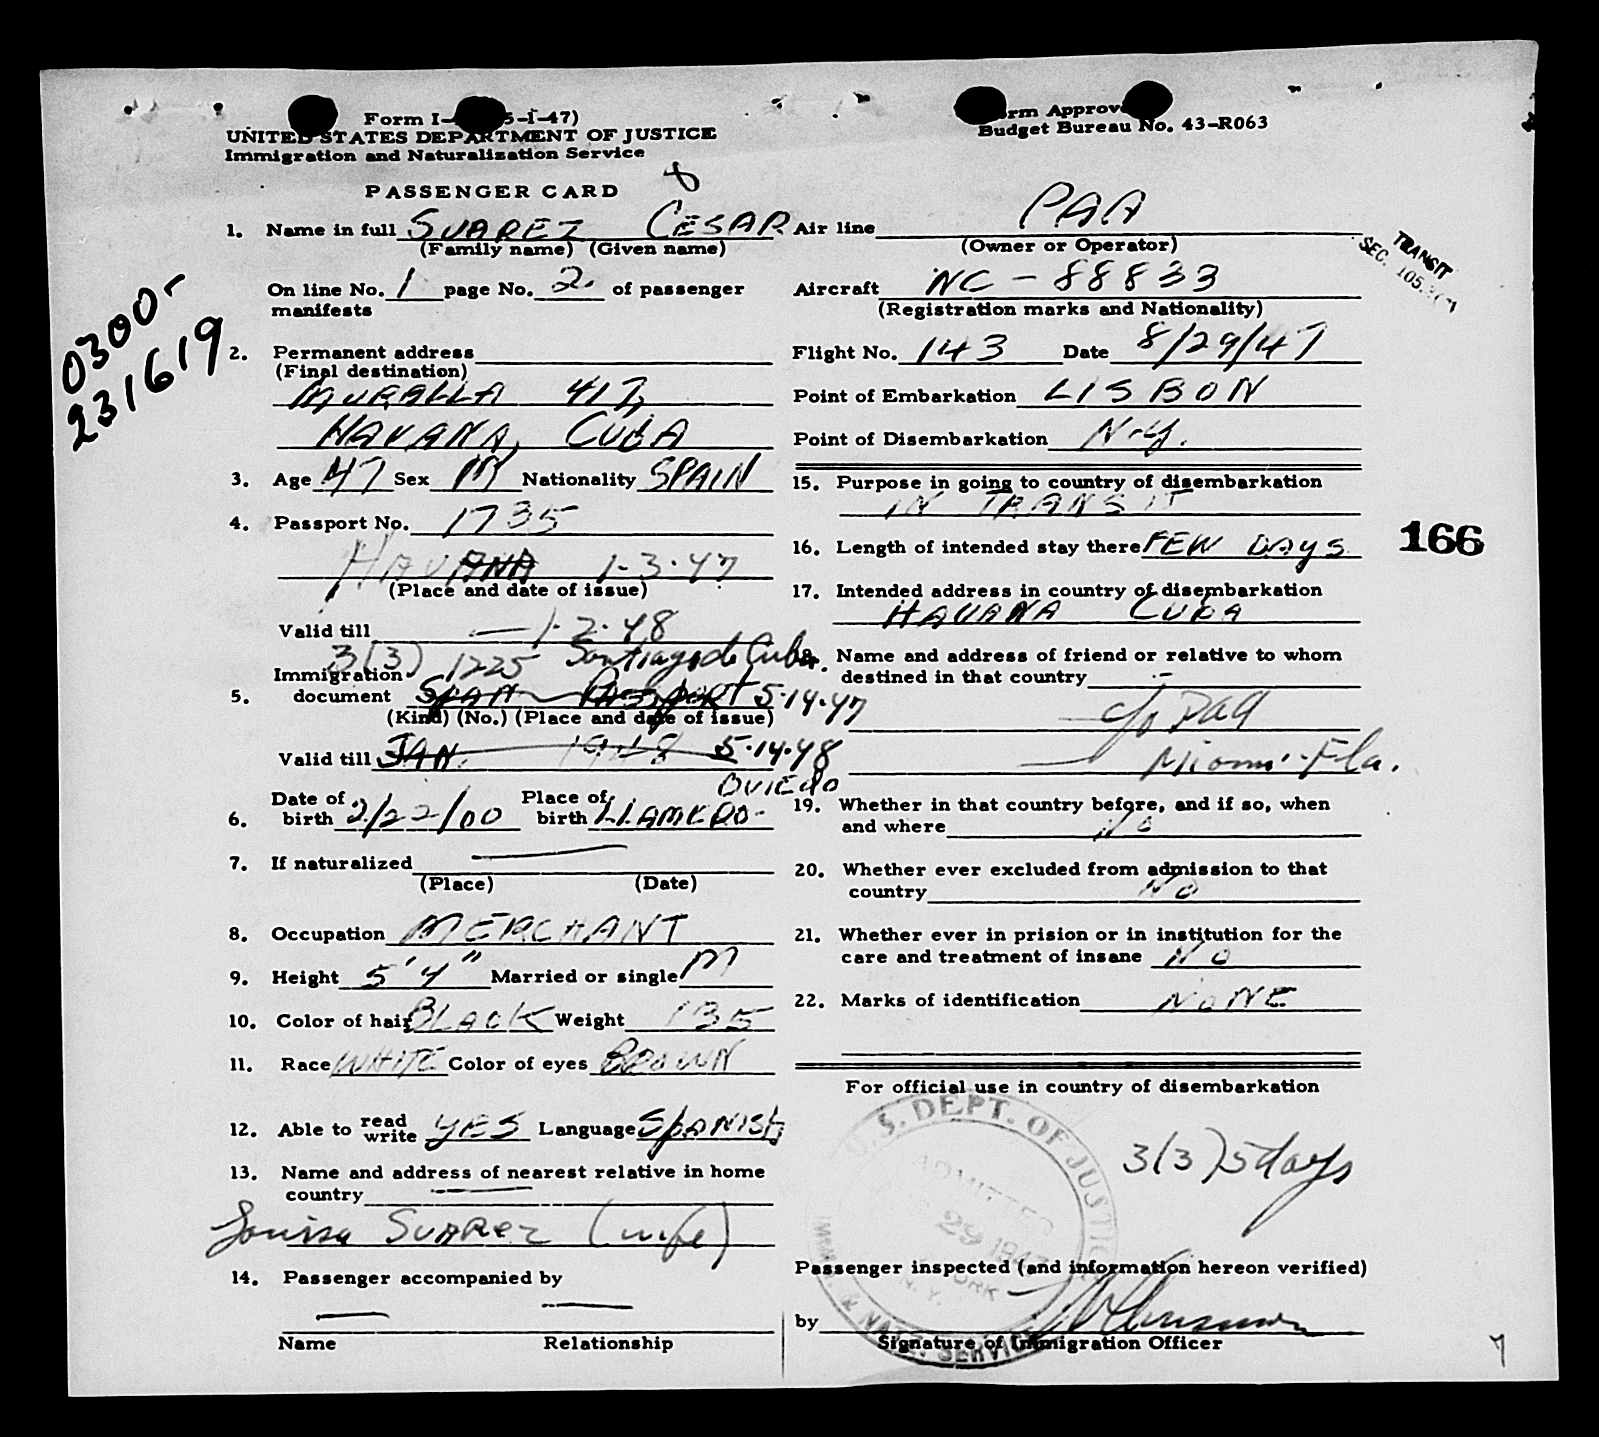 Form I- 5-1-47)
UNITED STATES DEPARTMENT OF JUSTICE
Immigration and Naturalization Service
PASSENGER CARD
rm Approv
Budget Bureau No. 43-R063
0300-
231619
1. Name in full SUAREZ CESAR
(Family name) (Given name)
On line No. 1 page No. 2 of passenger
manifests
2. Permanent address
(Final destination)
MURALLA 417,
HAVANA, CUBA
3. Age 47 Sex M Nationality SPAIN
4. Passport No. 1735
HAVANA 1-3-47
(Place and date of issue)
Valid till 1-2-48
3(3) 1225 Santiago de Cuba
Immigration
5. document SPAN Passport 5-14-47
(Kind) (No.) (Place and date of issue)
Valid till JAN. 1948 5-14-48
OVIEDO
6. Date of birth 2/22/00 Place of birth
7. If naturalized
(Place) (Date)
8. Occupation MERCHANT
9. Height 5'4" Married or single M
10. Color of hair BLACK Weight 135
11. Race WHITE Color of eyes BROWN
12. Able to read write YES Language SPANISH
13. Name and address of nearest relative in home
country
Louisa SUAREZ (wife)
14. Passenger accompanied by
Name Relationship
Air line PAA
(Owner or Operator)
TRANSIT
SEC. 105.
Aircraft NC-88833
(Registration marks and Nationality)
Flight No. 143 Date 8/29/47
Point of Embarkation LISBON
Point of Disembarkation N.Y.
15. Purpose in going to country of disembarkation
IN TRANSIT
16. Length of intended stay there FEW DAYS
166
17. Intended address in country of disembarkation
HAVANA CUBA
18. Name and address of friend or relative to whom
destined in that country
c/o PAA
Miami Fla.
19. Whether in that country before, and if so, when
and where NO
20. Whether ever excluded from admission to that
country NO
21. Whether ever in prision or in institution for the
care and treatment of insane NO
22. Marks of identification NONE
For official use in country of disembarkation
U.S. DEPT. OF JUSTICE
ADMITTED
29 1947
YORK
N.Y.
IMM. & NATZ. SERVICE
3(3) 5 days
Passenger inspected (and information hereon verified)
by
Signature of Immigration Officer
7